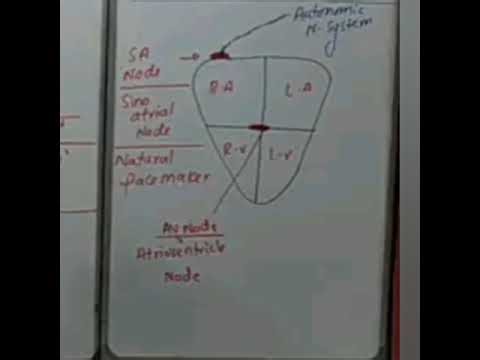 Autonomic
N-System
SA
Node
Sino
atrial
Node
Natural
pacemaker
R-A
L-A
R-V
L-V
AV Node
Atrioventricle
Node